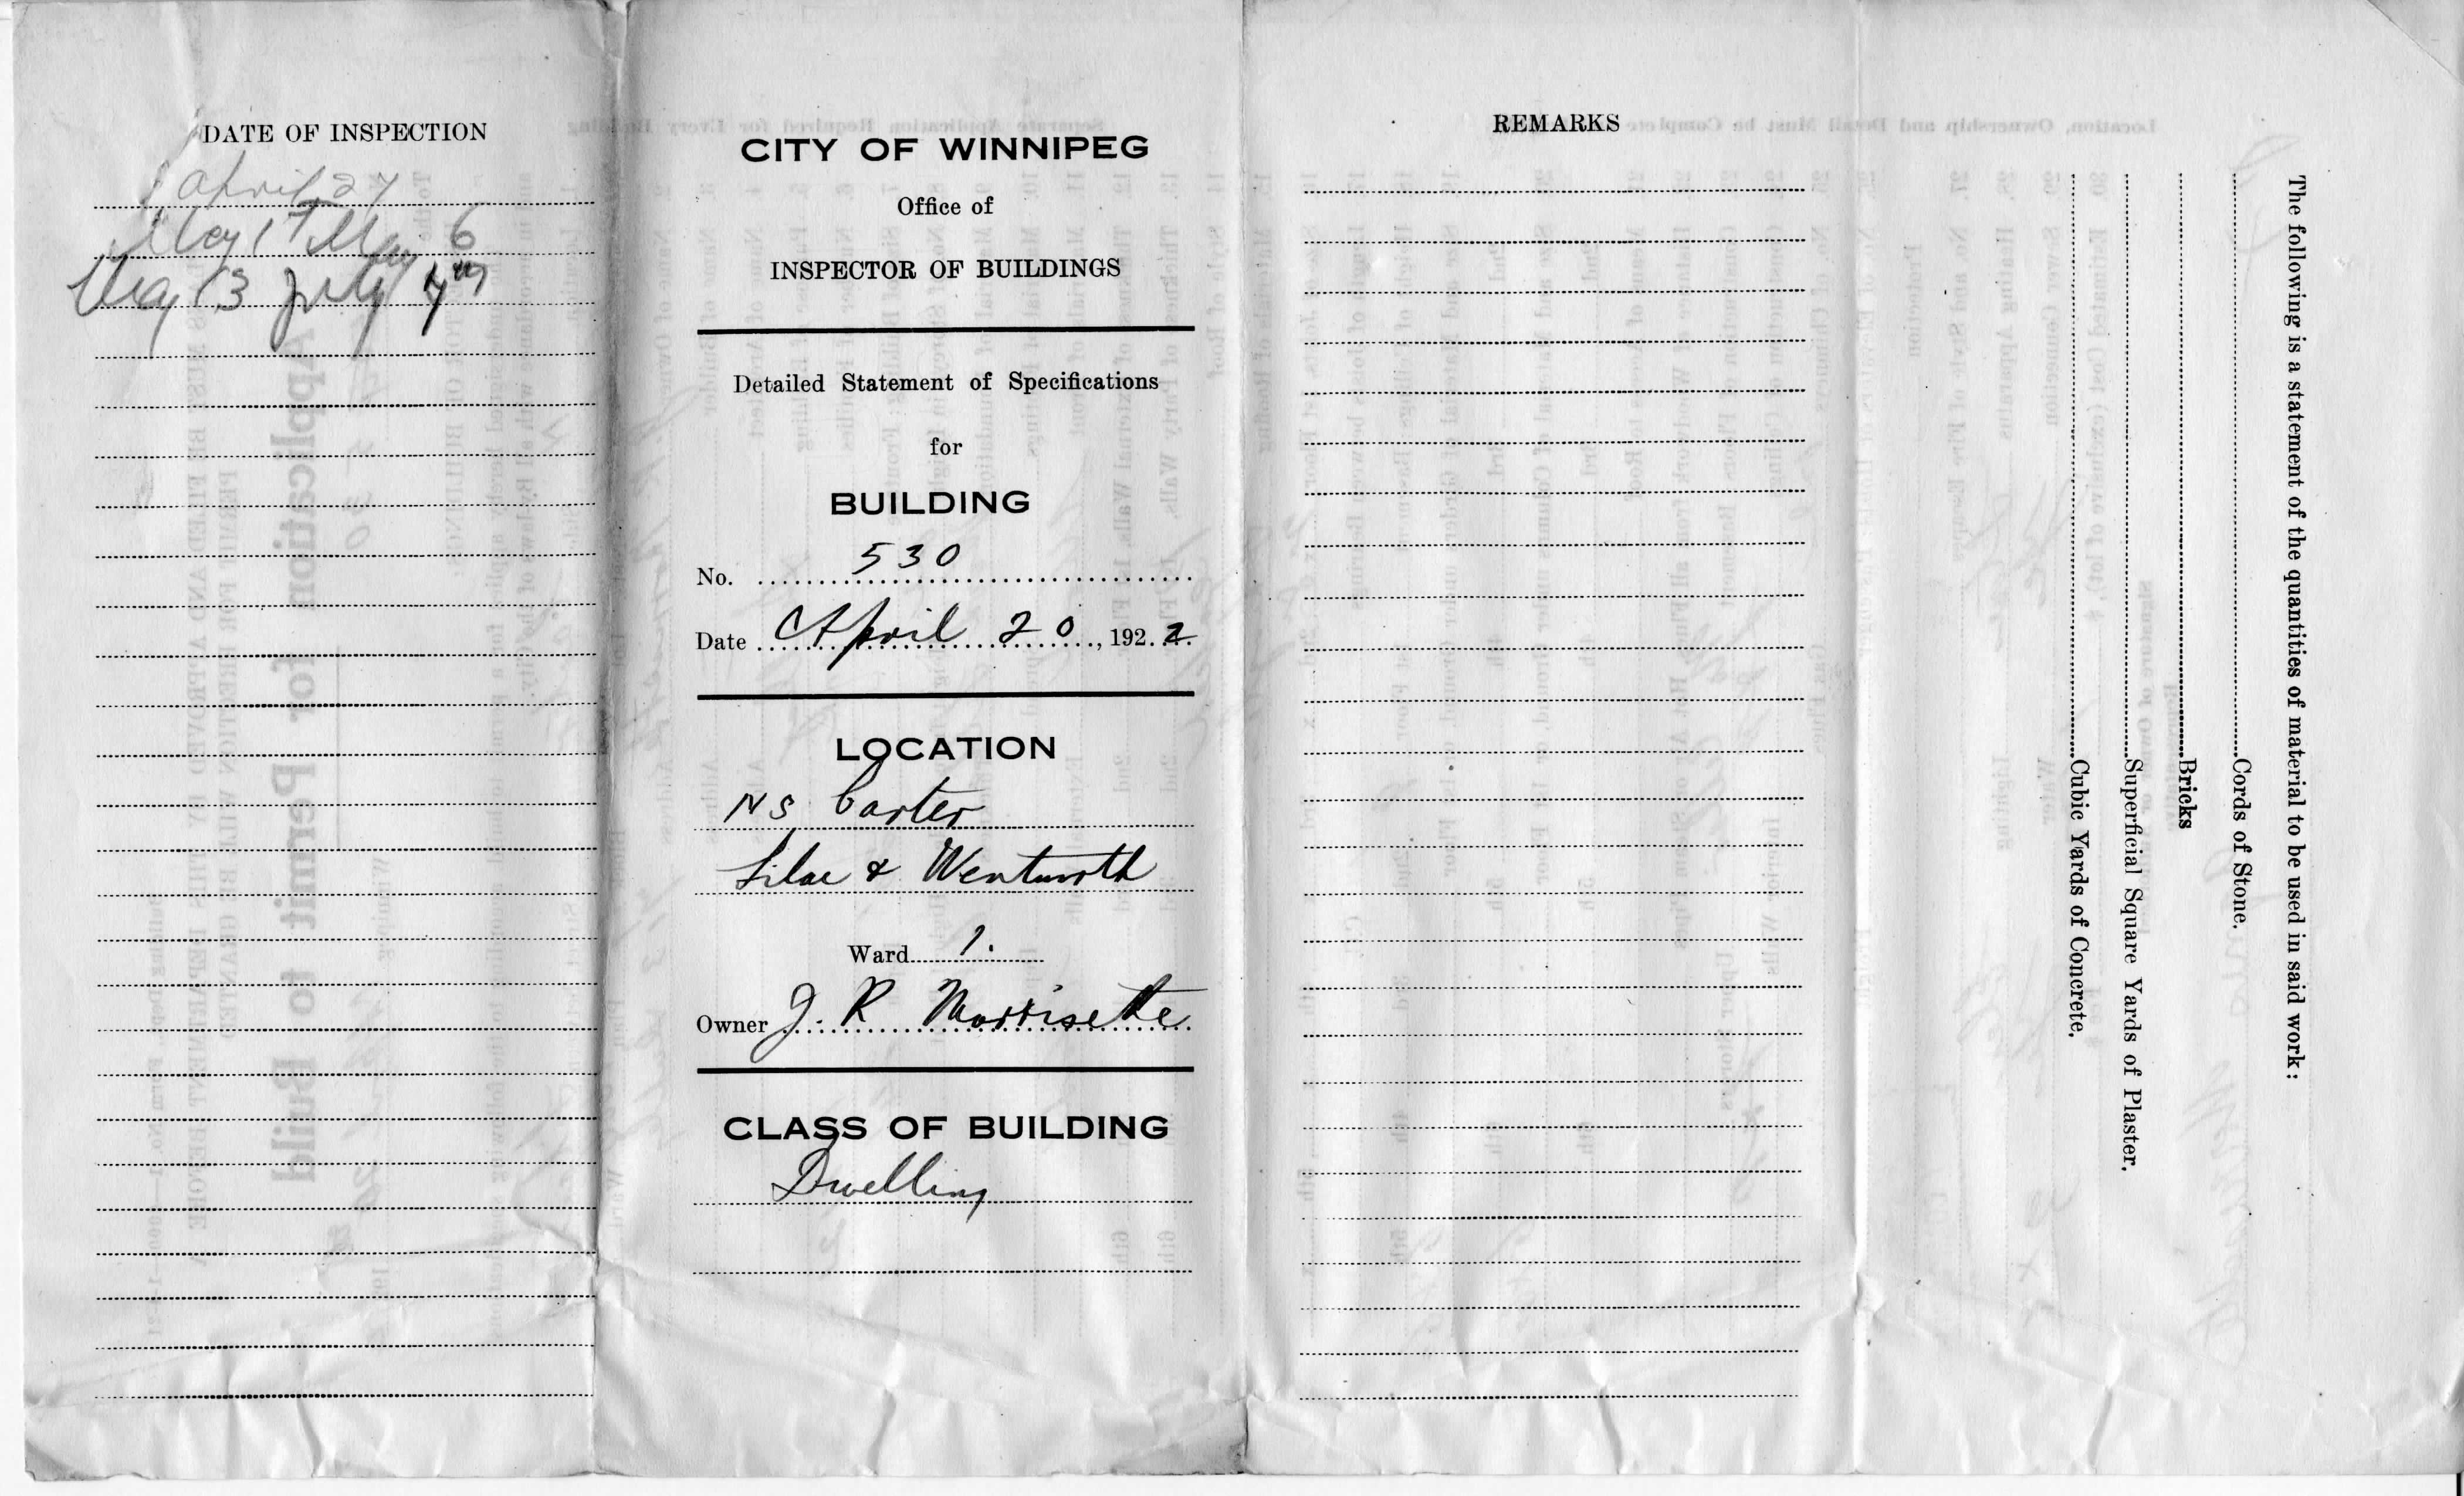 DATE OF INSPECTION
April 27
May 1st May 6
May 13 July 7th
CITY OF WINNIPEG
Office of
INSPECTOR OF BUILDINGS
Detailed Statement of Specifications
for
BUILDING
No. 530
Date April 20, 1922.
LOCATION
NS Carter
Lilac & Wentworth
Ward 1.
Owner J. R Morrisette
CLASS OF BUILDING
Dwelling
REMARKS
The following is a statement of the quantities of material to be used in said work:
Cords of Stone.
Bricks
Superficial Square Yards of Plaster.
Cubic Yards of Concrete.